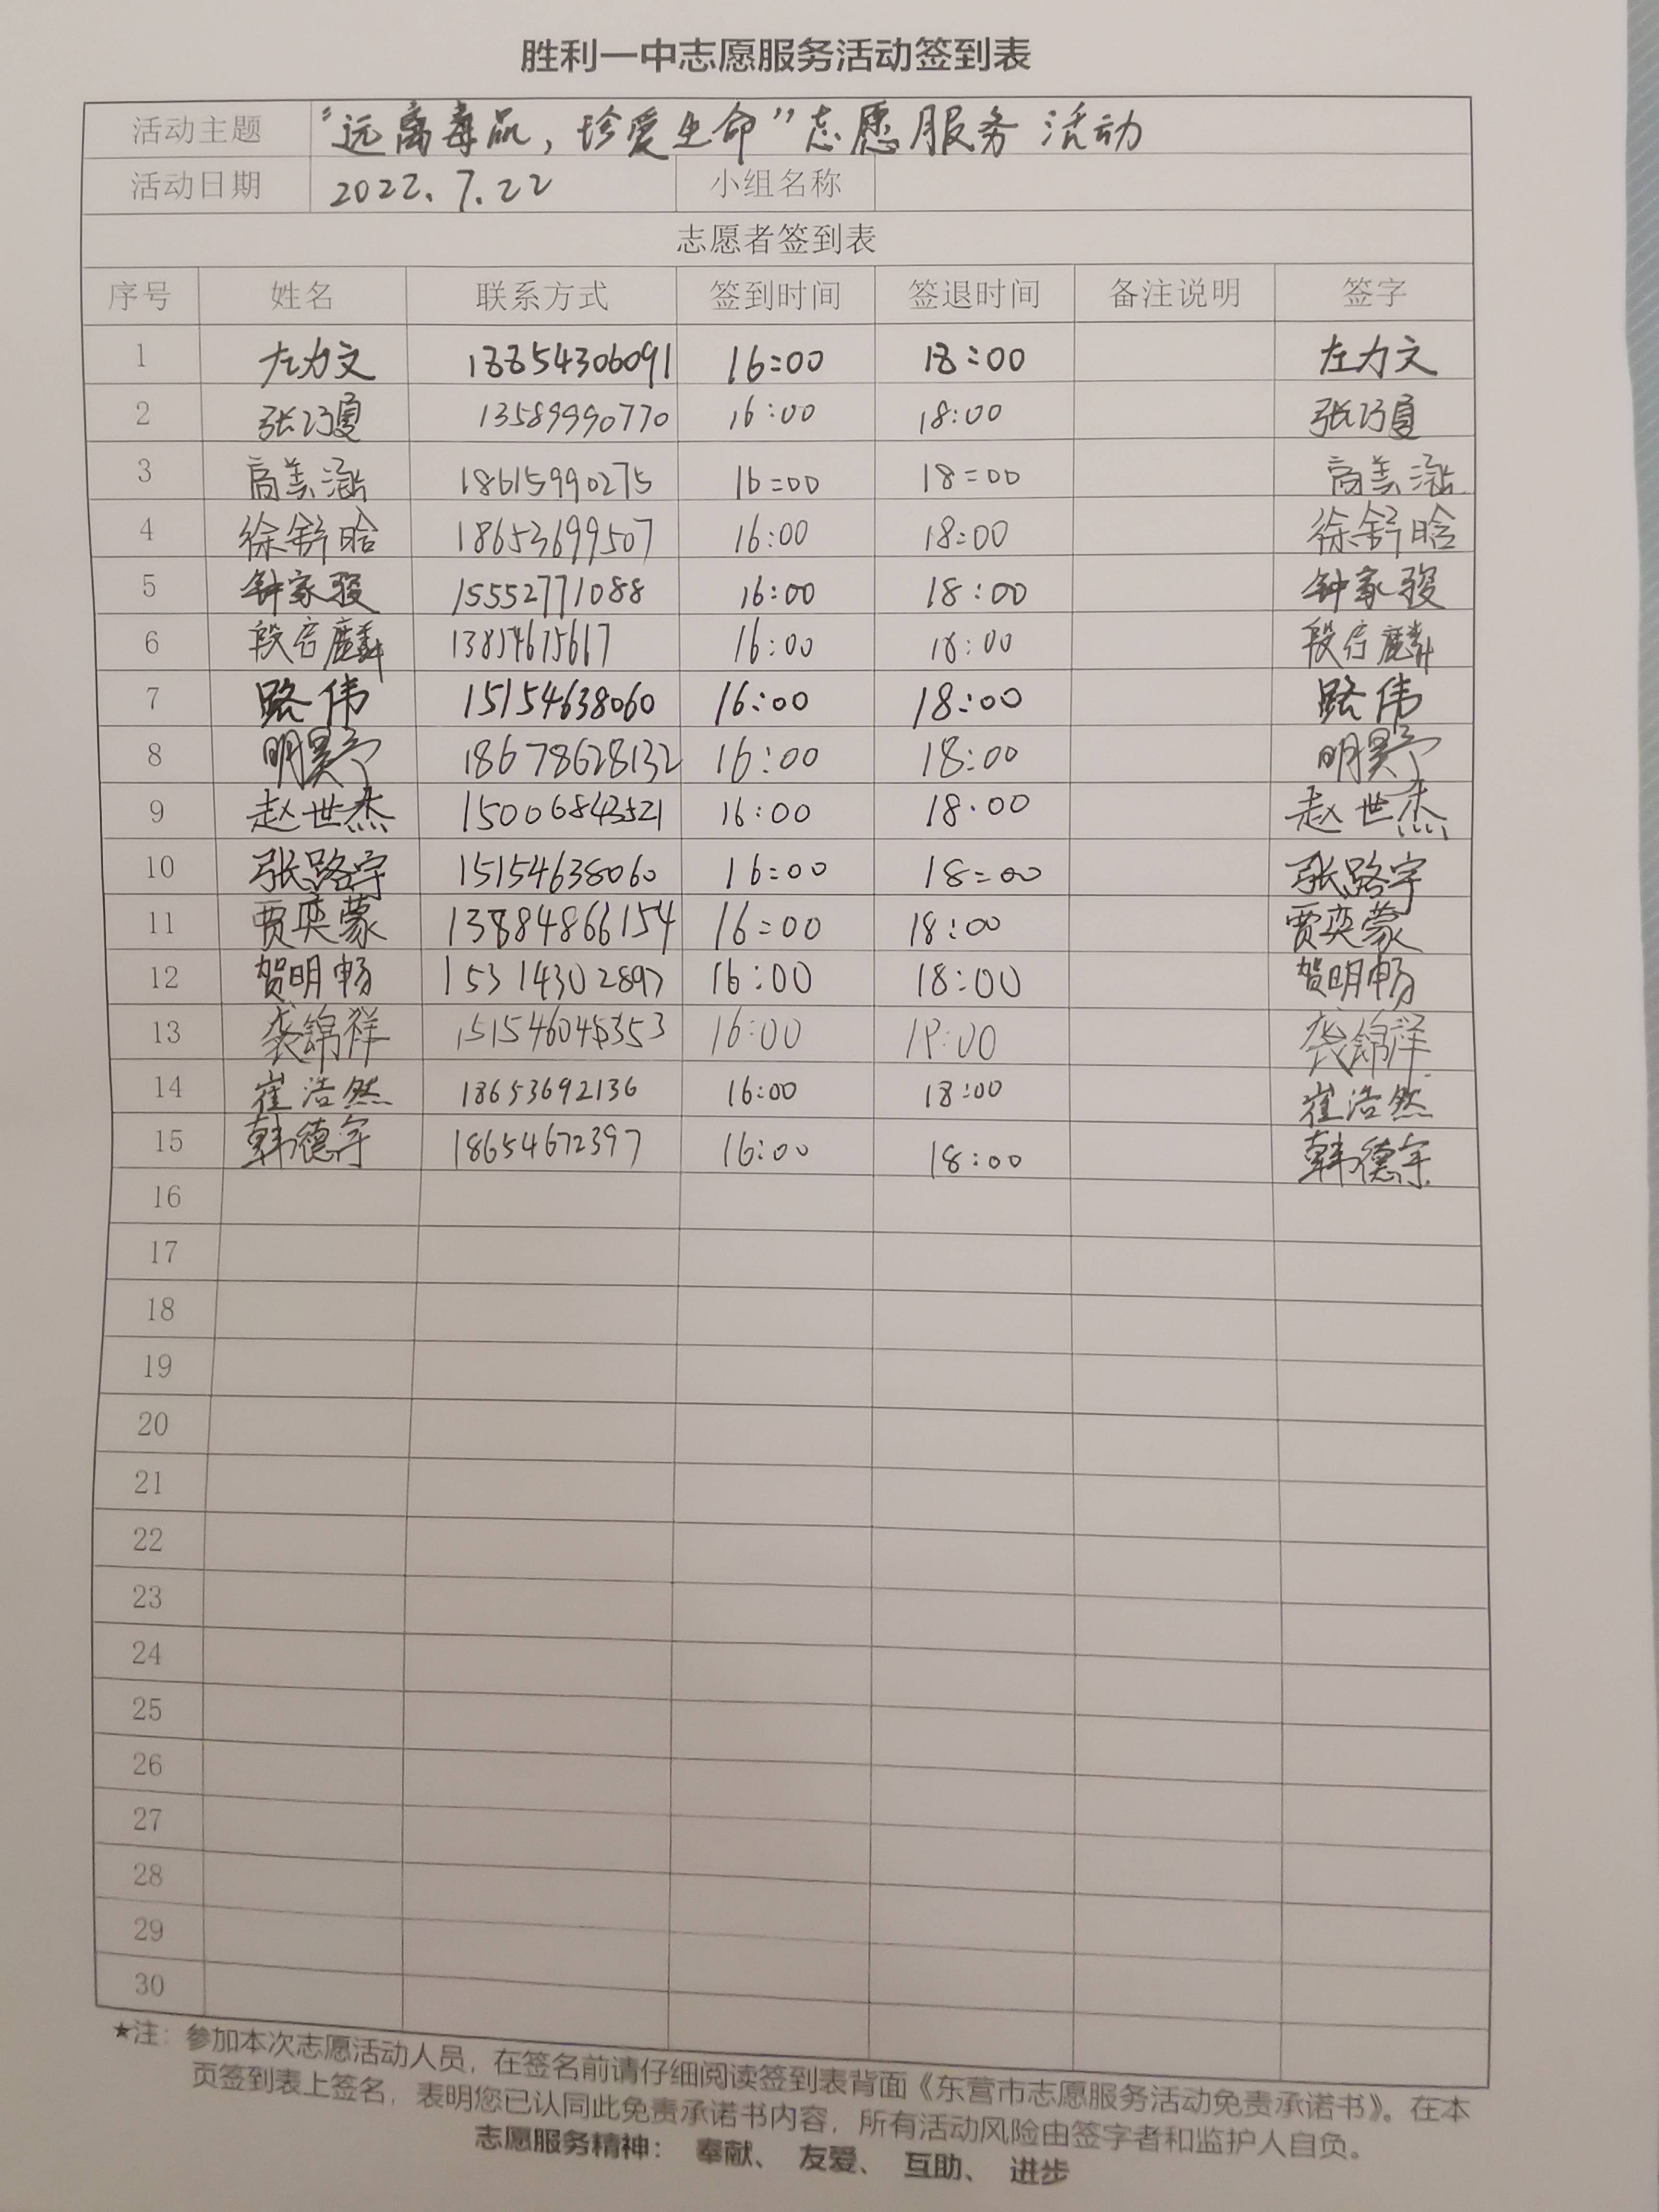 胜利一中志愿服务活动签到表
活动主题 “远离毒品，珍爱生命”志愿服务活动
活动日期 2022.7.22 小组名称
志愿者签到表
序号 姓名 联系方式 签到时间 签退时间 备注说明 签字
1 左力文 18854306091 16:00 18:00 左力文
2 张巧夏 13589990770 16:00 18:00 张巧夏
3 高美涵 18615990275 16:00 18:00 高美涵
4 徐舒晗 18653699507 16:00 18:00 徐舒晗
5 钟家骏 15552771088 16:00 18:00 钟家骏
6 段咨麟 13854675617 16:00 18:00 段咨麟
7 路伟 15154638060 16:00 18:00 路伟
8 明昊予 18678628132 16:00 18:00 明昊予
9 赵世杰 15006843521 16:00 18:00 赵世杰
10 张路宇 15154638060 16:00 18:00 张路宇
11 贾奕蒙 13884866154 16:00 18:00 贾奕蒙
12 贺明畅 15314302897 16:00 18:00 贺明畅
13 裘锦祥 151546045353 16:00 18:00 裘锦祥
14 崔浩然 18653692136 16:00 18:00 崔浩然
15 韩德宇 18654672397 16:00 18:00 韩德宇
16
17
18
19
20
21
22
23
24
25
26
27
28
29
30
★注：参加本次志愿活动人员，在签名前请仔细阅读签到表背面《东营市志愿服务活动免责承诺书》。在本
页签到表上签名，表明您已认同此免责承诺书内容，所有活动风险由签字者和监护人自负。
志愿服务精神： 奉献、 友爱、 互助、 进步